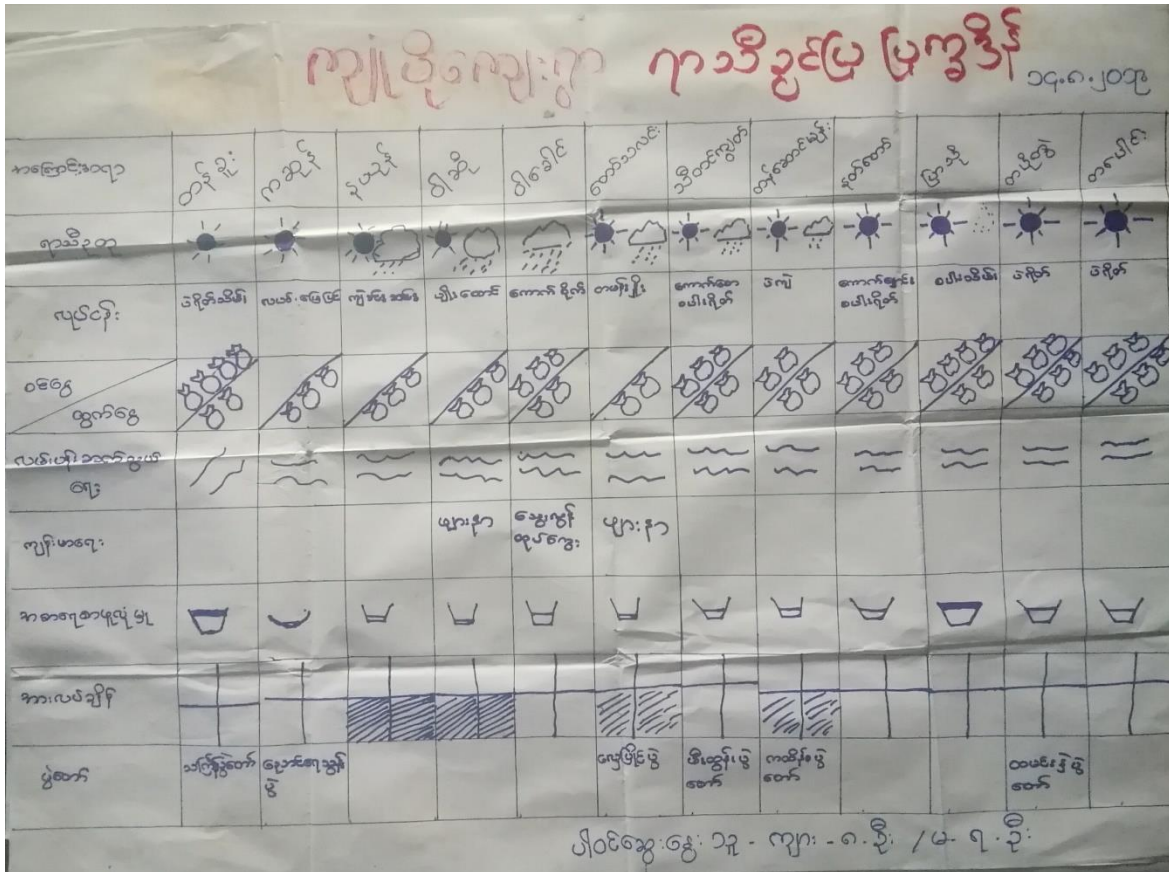 ကျုံဖိုကျေးရွာ ရာသီခွင်ပြ ပြက္ခဒိန်
အကြောင်းအရာ တန်ခူး ကဆုန် နယုန် ဝါဆို ဝါခေါင် တော်သလင်း သီတင်းကျွတ် တန်ဆောင်မုန်း နတ်တော် ပြာသို တပို့တွဲ တပေါင်း
ရာသီဥတု
လုပ်ငန်း ဒဂိုတ်သိမ်း လယ်မြေပြင် ပျိုးထောင် ကောက်စိုက် တမန်းဖြိုး ကောက်စော စပါးရိတ် ဒကျဲ စပါးရိတ် စပါးသိမ်း ဒဂိုတ် ဒဂိုတ်
ဝင်ငွေ
ထွက်ငွေ
လမ်းပန်းဆက်သွယ်
ရေး
ကျန်းမာရေး ဖျားနာ သွေးလွန် တုပ်ကွေး ဖျားနာ
အစားရေစာဖူလုံမှု
အားလပ်ချိန်
ပွဲတော် သင်္ကြန်ပွဲတော် ညောင်ရေသွန်ပွဲ လှေပြိုင်ပွဲ မီးထွန်းပွဲတော် ကထိန်ပွဲတော် ထမနဲပွဲတော်
ပါဝင်ဆွေးနွေးသူ - ကျား - ၈ ဦး / မ - ၇ ဦး